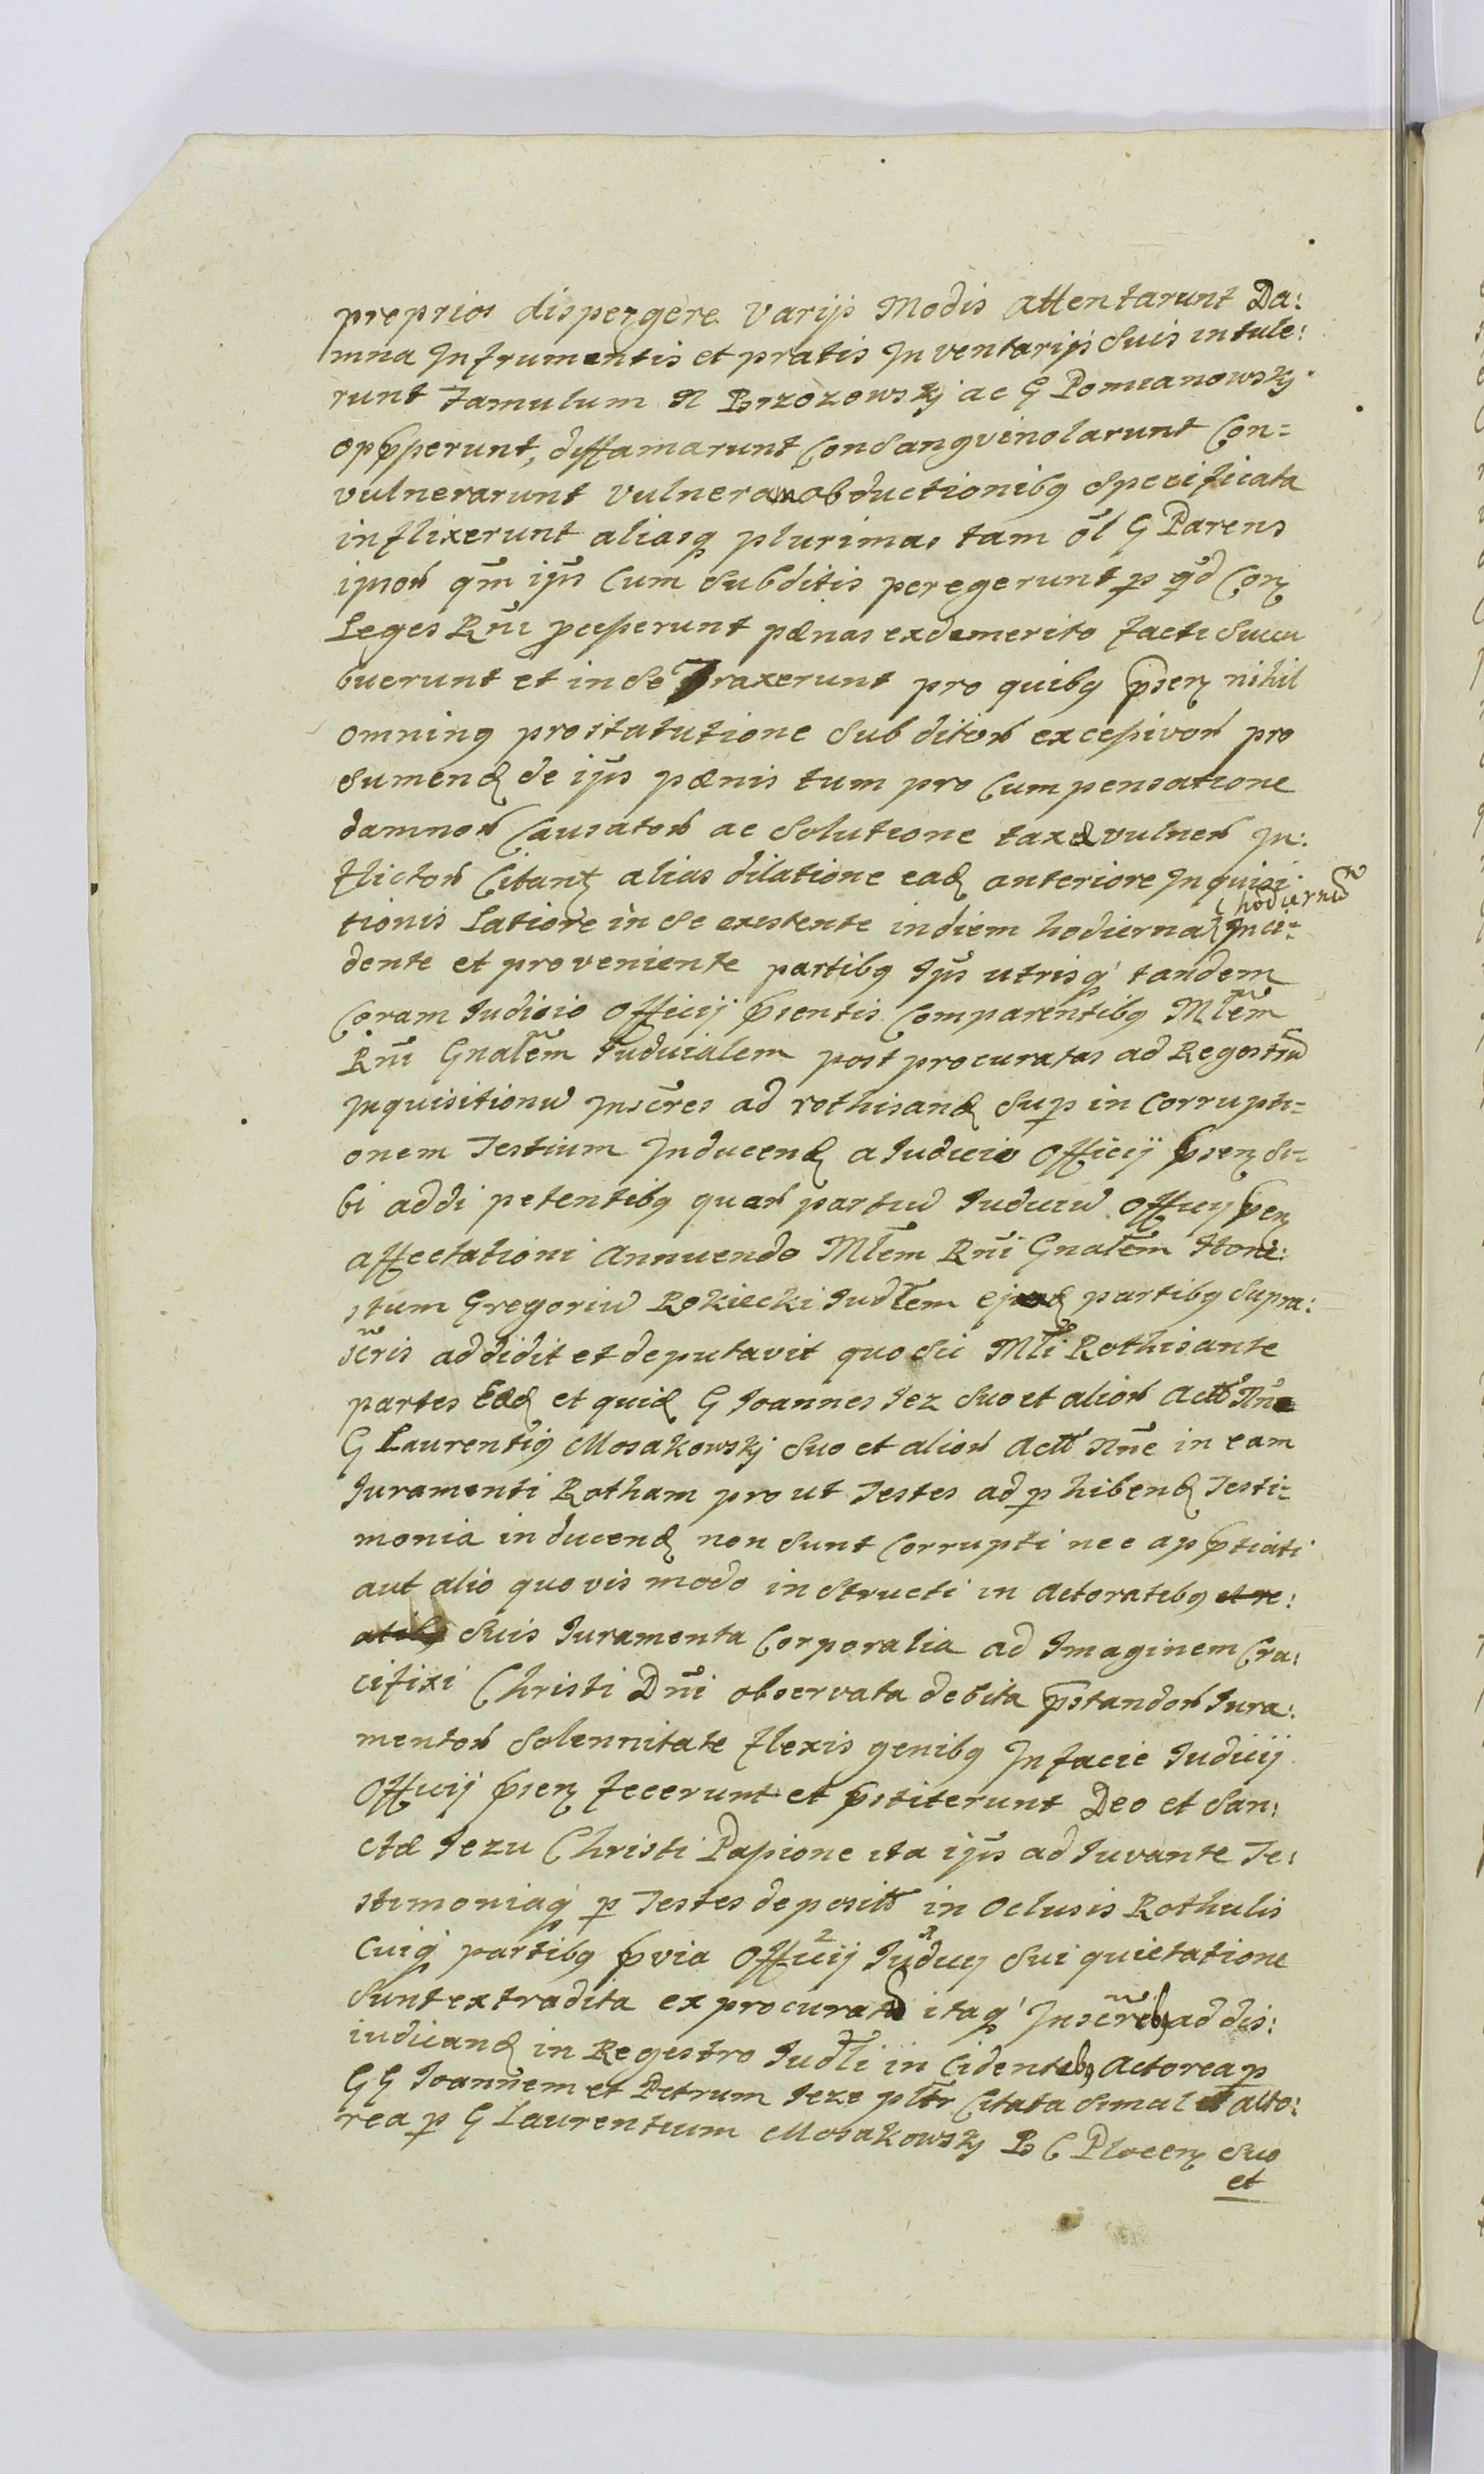 preprios dispergere varijs Modis attentarunt Da:
mna Infrumentis et pratis Inventarijs suis intule:
runt Famulum N Brzozowskj ac G Pomianowskj
oppperunt, diffamarunt Consangvinolarunt Con=
vulnerarunt vulnera obductionibq specificata
inflixerunt aliasq plurimas tam ol G Parens
ipsor qm ijs Cum subditis peregerunt p qd Con
Leges Rni pcesserunt pænas exdemerito facti succu
buerunt et in se Traxerunt pro quibq psen nihil
omninq prostatutione subditor excessivor pro
sumend de ijs pænis tum pro Cumpensatione
damnor Causator ac solutione taxæ vulner In:
flictor Citant alias dilatione ead anteriore Inquisi:
tionis Latiore in se existente indiem hodierna hodiernu Inci=
dente et proveniente partibq Ijs utrisq tandem
Coram Iudicio Officij psentis Comparentibq Mlem
Rni Gnalem Iudicialem post procuratas ad Regestru
Inquisitionu Inscres ad rothisand sup in Corrupti=
onem Testium Inducend a Iudicio Officij psen si=
bi addi petentibq quar partiu Iudiciu Officij psen
affectationi Annuendo Mlem Rni Gnalem Hone:
stum Gregoriu Rokiecki Iudlem ejusd partibq supra:
scris addidit et deputavit quo sci Mli Rothisante
partes Eæd et quid G Joannes Jez suo et alior Actt Nne
G Laurentiq Mosakowskj suo et alior Actt Nne in eam
Juramenti Rotham prout Testes ad phibend Testi=
monia inducend non sunt Corrupti nec apptiati
aut alio quovis modo instructi in Actoratibq et re:
atibq suis Juramenta Corporalia ad Imaginem Cru:
cifixi Christi Dni observata debita pstandor Jura:
mentor solennitate flexis genibq In facie Iudicij
Officij psen fecerunt et pstiterunt Deo et San:
ctæ Jezu Christi Passione ita ijs adJuvante Te:
stimoniaq p Testes depositt in Oclusis Rothulis
Cuiq partibq pvia Officij 2 Iudicij 1 sui quietatione
sunt extradita ex procuratis itaq Inscribq ad dis:
iudicand in Regestro Iudli in Cidentibq Actorea p
GG Joannem et Petrum Jeze pltr Citata simul et acto:
rea p G Laurentium Mosakowskj B C Plocen suo
et